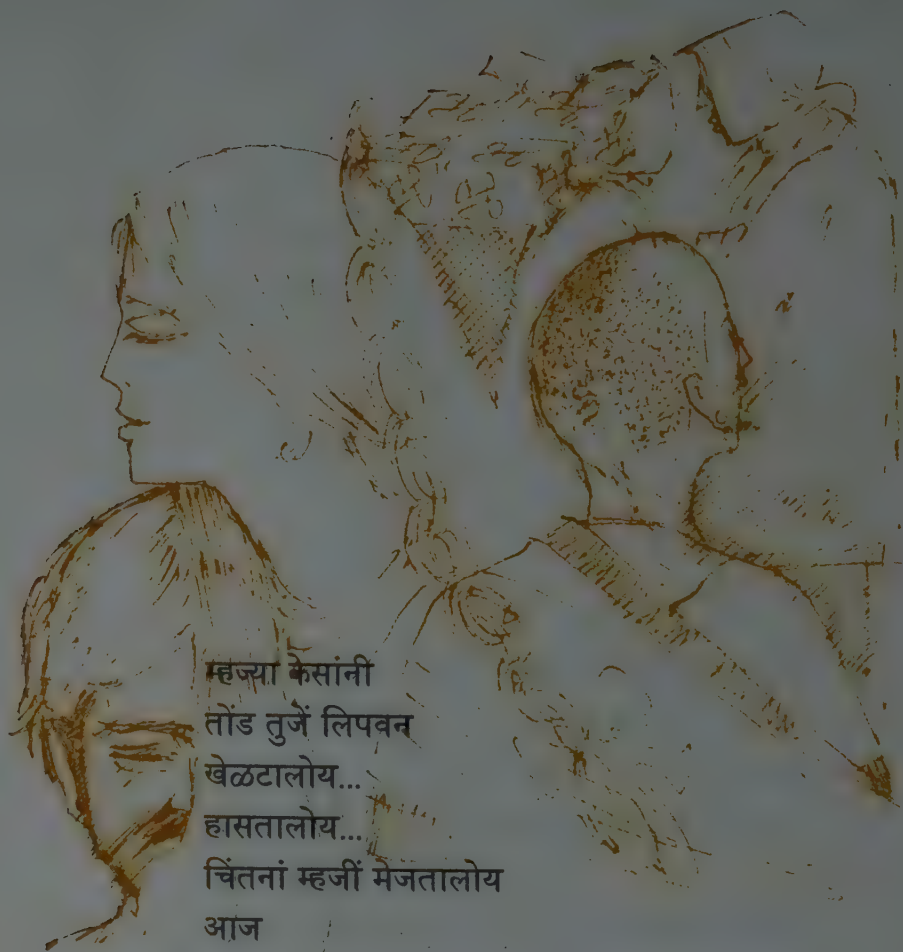 म्हज्या केसांनी
तोंड तुजें लिपवन
खेळटालोय...
हासतालोय...
चिंतनां म्हजीं मेजतालोय
आज